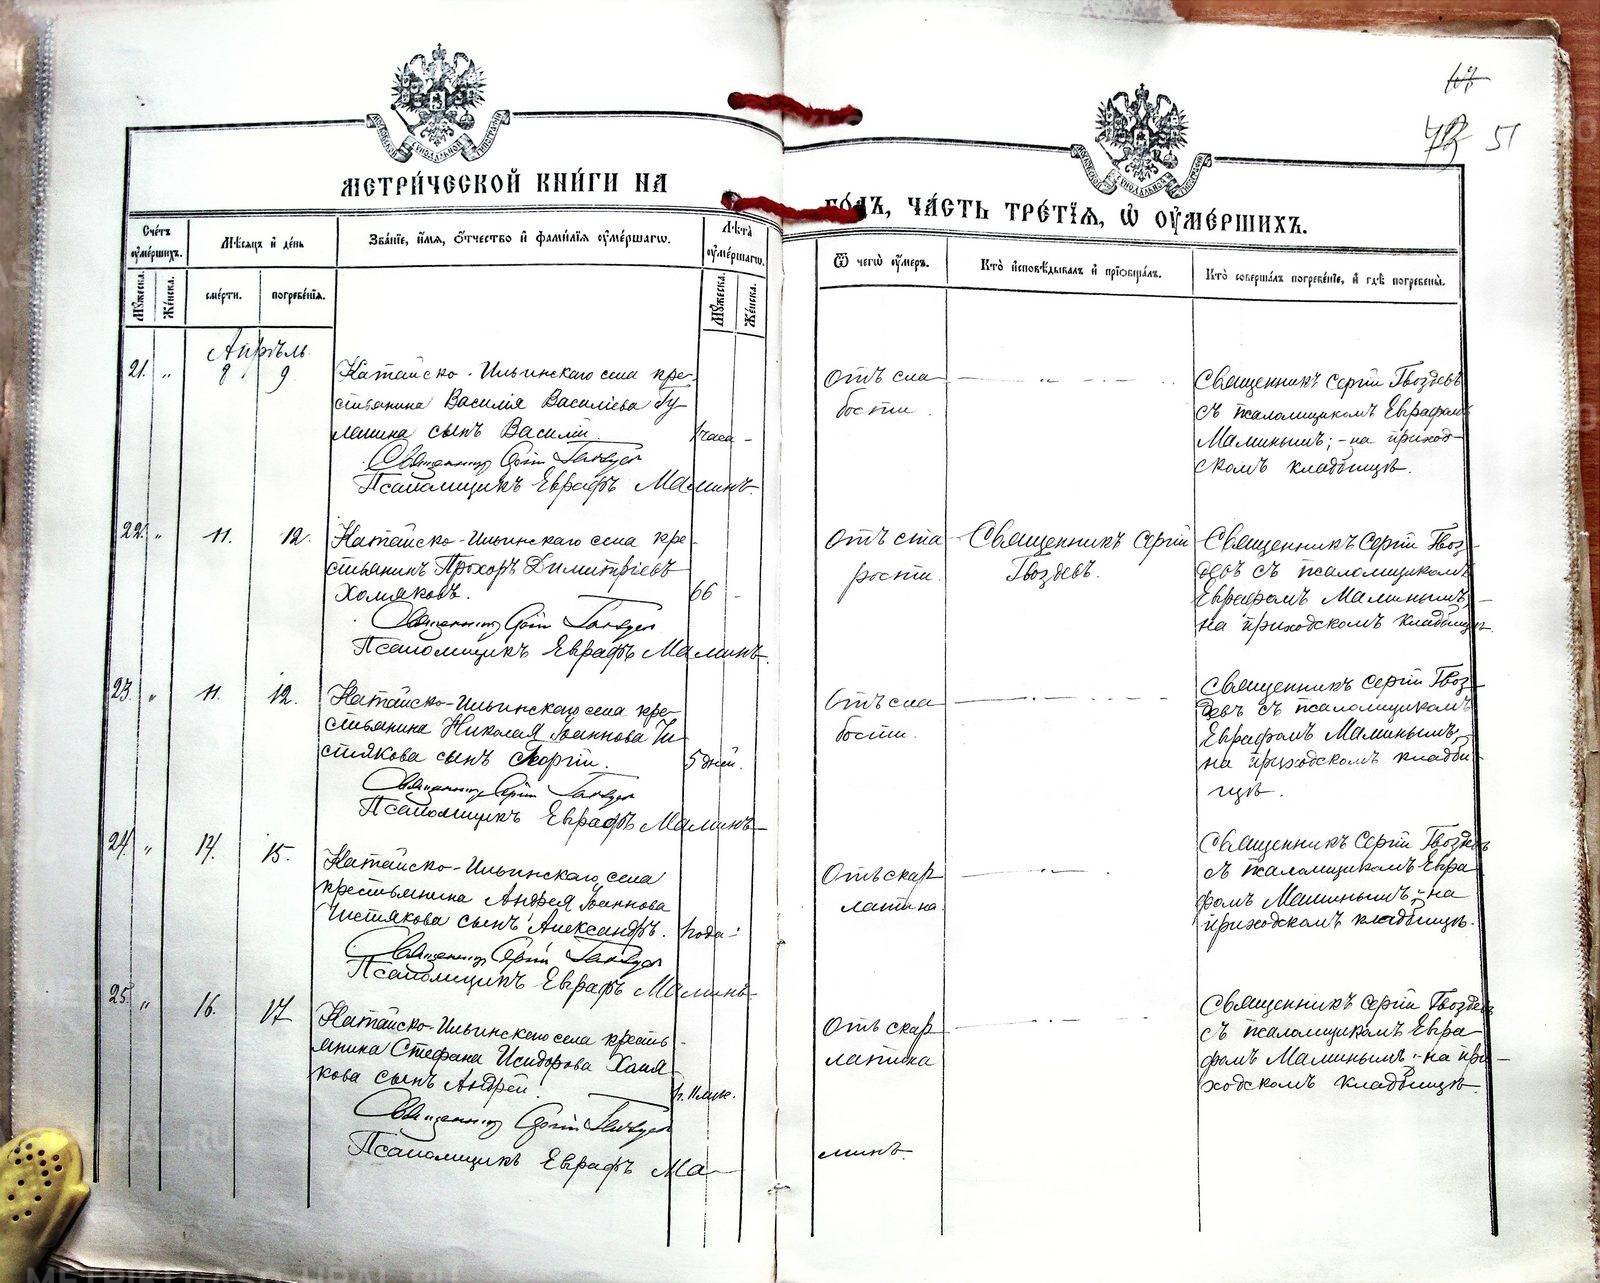 47
51
МЕТРИ́ЧЕСКОЙ КНИ́ГИ НА
ГО́ДЪ, ЧА́СТЬ ТРЕ́ТІѦ, Ѡ ОУМЕ́РШИХЪ.
Сче́тъ оумершихъ.
Мѣсяцъ и день
Зва́ніе, и́мѧ, о́тчество и фами́лїѧ оумершагѡ.
Лѣта̀ оуме́ршагѡ.
Ѿ чегѡ̀ оу́меръ.
Кто̀ исповѣ́дывалъ и прїѡбща́лъ.
Кто̀ соверша́лъ погребе́нїе, и гдѣ̀ погребены̀.
Мꙋжеска.
Же́нска.
сме́рти.
погребе́нїѧ.
Мꙋжеска.
Же́нска.
Апрѣль
21. „ 8 9
Катайско-Ильинскаго села кре-
стьянина Василія Василіева Гу
лашина сынъ Василій. 1 часа -
Священникъ Сергій Гвоздев
Псаломщикъ Евграфъ Маминъ.
Отъ сла
бости.
Священникъ Сергій Гвоздевъ
съ псаломщикомъ Евграфомъ
Маминымъ; - на приход-
скомъ кладбищѣ.
22. „ 11. 12.
Катайско-Ильинскаго села кре-
стьянинъ Прохоръ Димитріевъ
Холяковъ. 66 -
Священникъ Сергій Гвоздев
Псаломщикъ Евграфъ Маминъ.
Отъ ста
рости.
Священникъ Сергій
Гвоздевъ.
Священникъ Сергій Гвоз-
девъ съ псаломщикомъ
Евграфомъ Маминымъ, -
на приходскомъ кладбищѣ.
23. „ 11. 12.
Катайско-Ильинскаго села кре-
стьянина Николая Іоаннова Чи-
стякова сынъ Георгій. 5 дней.
Священникъ Сергій Гвоздев
Псаломщикъ Евграфъ Маминъ
Отъ сла
бости.
Священникъ Сергій Гвоз-
девъ съ псаломщикомъ
Евграфомъ Маминымъ, -
на приходскомъ кладби-
щѣ.
24. „ 14. 15.
Катайско-Ильинскаго села
крестьянина Андрея Іоаннова
Чистякова сынъ Александръ. 1 года -
Священникъ Сергій Гвоздев
Псаломщикъ Евграфъ Маминъ
Отъ скар
латина
Священникъ Сергій Гвоздевъ
съ псаломщикомъ Евгра
фомъ Маминымъ - на
приходскомъ кладбищѣ.
25. „ 16. 17
Катайско-Ильинскаго села кресть-
янина Стефана Исидорова Холя-
кова сынъ Андрей.
Священникъ Сергій Гвоздев
Псаломщикъ Евграфъ Ма-
минъ.
Отъ скар
латина
Священникъ Сергій Гвоздевъ
съ псаломщикомъ Евгра
фомъ Маминымъ - на при-
ходскомъ кладбищѣ.